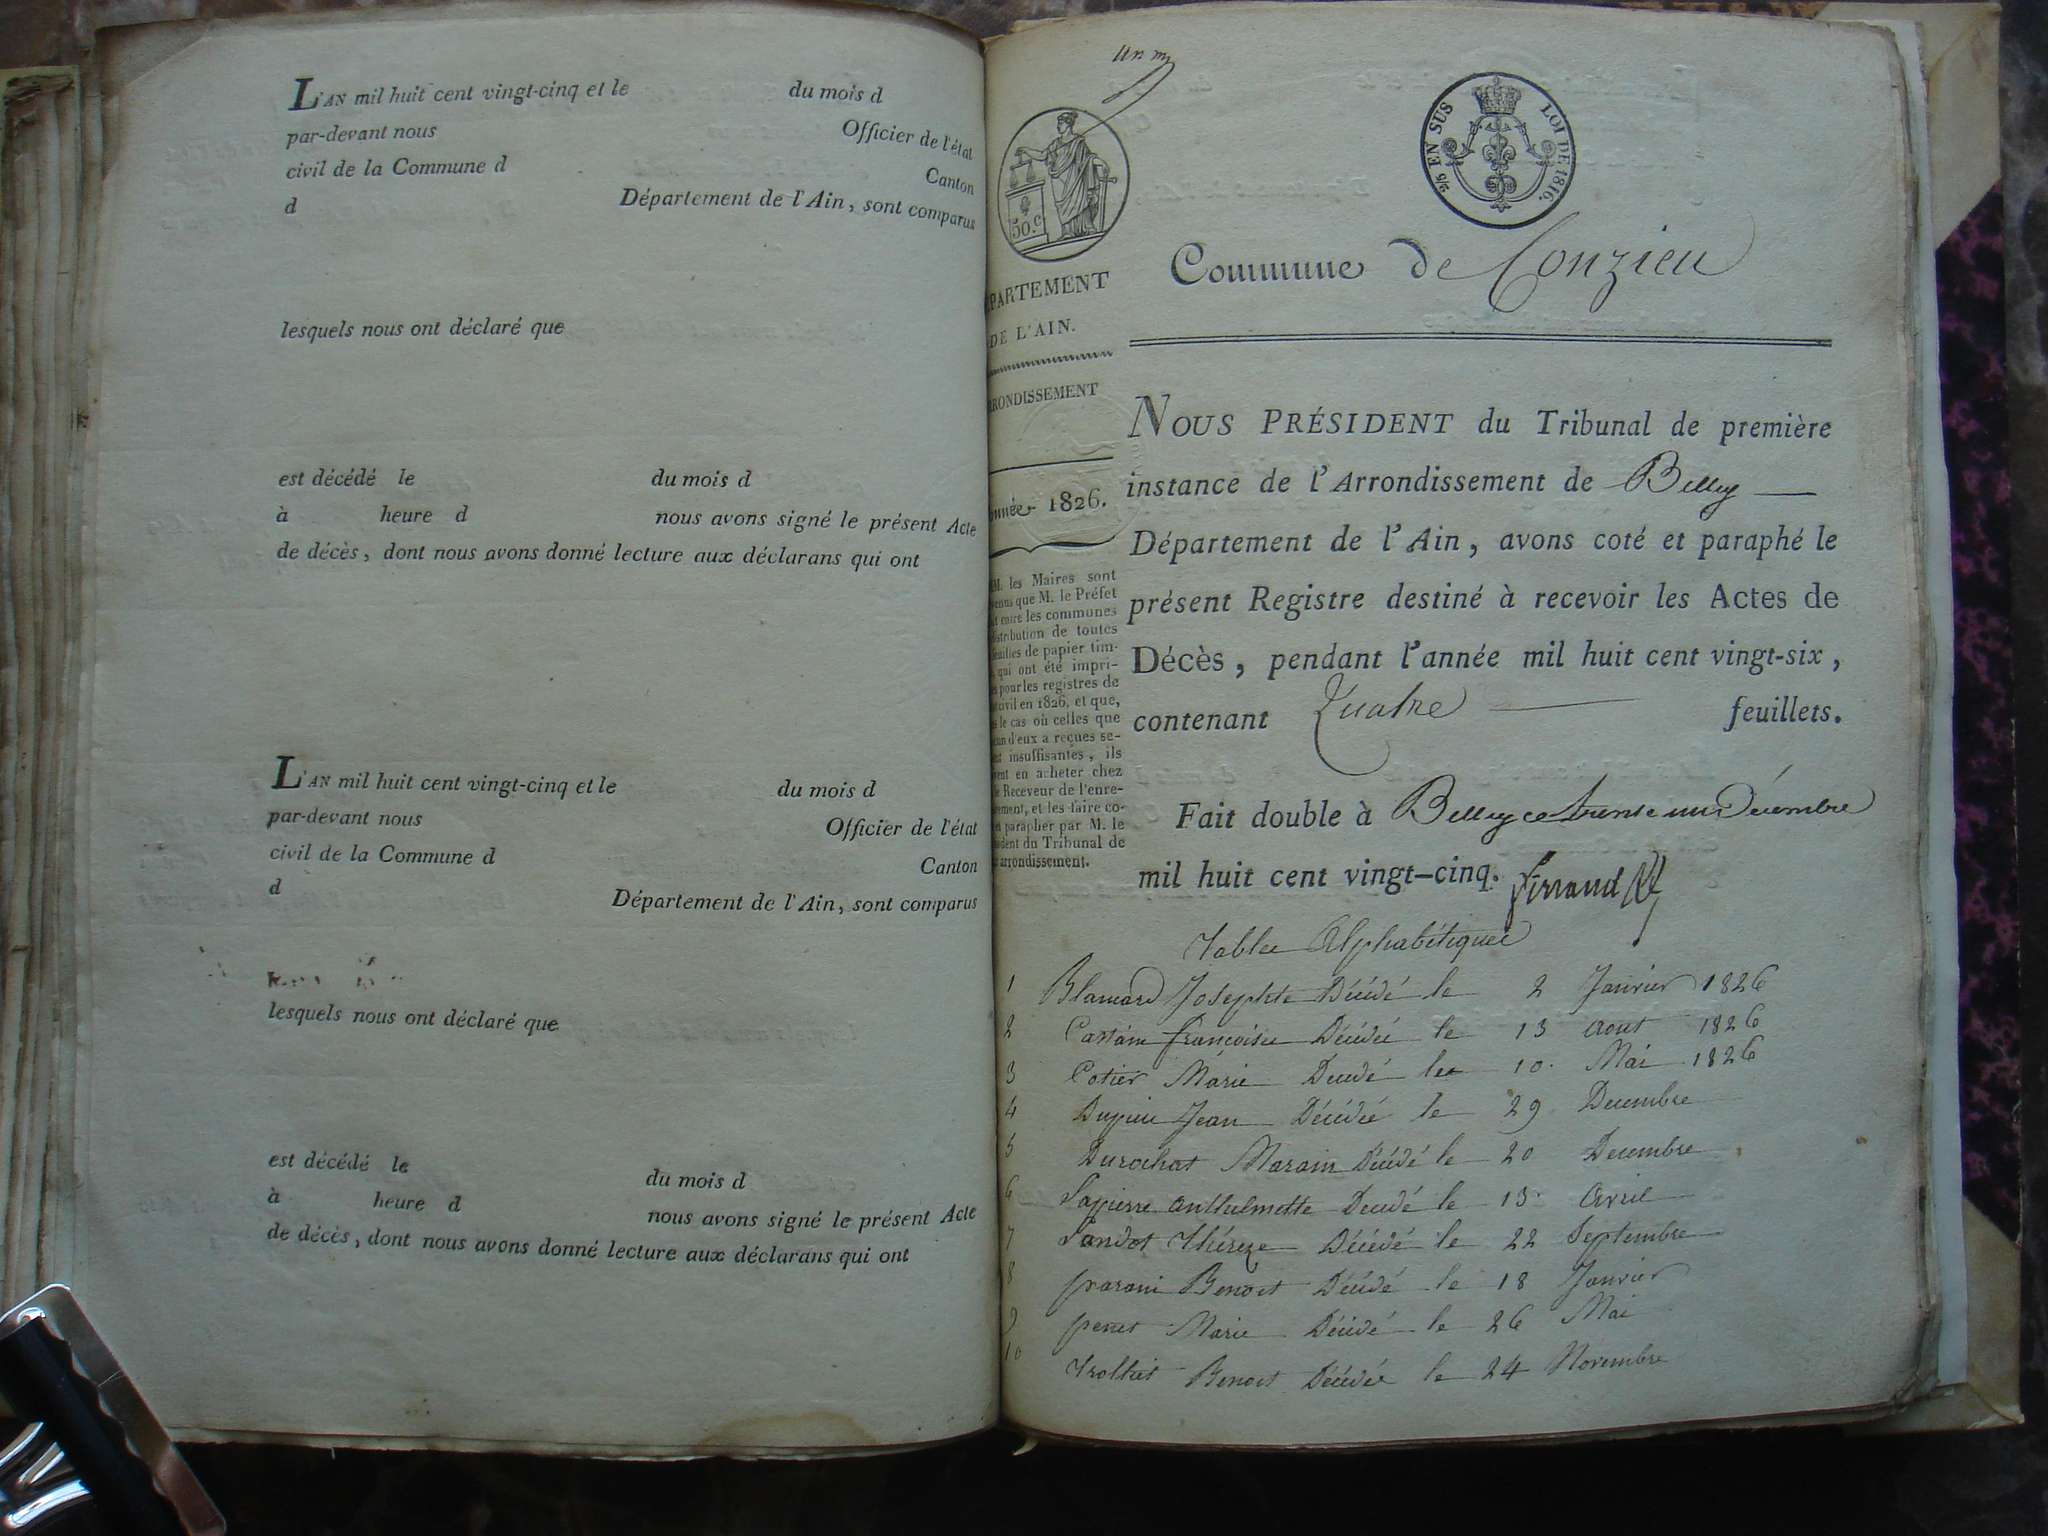 L'AN mil huit cent vingt-cinq et le du mois d
par-devant nous Officier de l'état
civil de la Commune d Canton
d Département de l'Ain, sont comparus
lesquels nous ont déclaré que
est décédé le du mois d
à heure d nous avons signé le présent Acte
de décès, dont nous avons donné lecture aux déclarans qui ont
L'AN mil huit cent vingt-cinq et le du mois d
par-devant nous Officier de l'état
civil de la Commune d Canton
d Département de l'Ain, sont comparus
lesquels nous ont déclaré que
est décédé le du mois d
à heure d nous avons signé le présent Acte
de décès, dont nous avons donné lecture aux déclarans qui ont
un
50.C
2/5 EN SUS LOI DE 1816.
PARTEMENT
DE L'AIN.
RONDISSEMENT
nnée 1826.
M. les Maires sont
venus que M. le Préfet
t entre les communes
stribution de toutes
feuilles de papier tim-
qui ont été impri-
s pour les registres de
civil en 1826, et que,
s le cas où celles que
un d'eux a reçues se-
nt insuffisantes, ils
vent en acheter chez
le Receveur de l'enre-
rement, et les faire co-
et parapher par M. le
sident du Tribunal de
arrondissement.
Commune de Conzieu
NOUS PRÉSIDENT du Tribunal de première
instance de l'Arrondissement de Belley
Département de l'Ain, avons coté et paraphé le
présent Registre destiné à recevoir les Actes de
Décès, pendant l'année mil huit cent vingt-six,
contenant Quatre feuillets.
Fait double à Belley ce trente un Décembre
mil huit cent vingt-cinq.
Table Alphabétique
1 Josephte Décédé le 2 Janvier 1826
2 françoise Décédée le 13 aout 1826
3 Cotier Marie Decedé le 10. Mai 1826
4 Jean Décédée le 29 Decembre
5 Durochat Décédé le 20 Decembre
6 Lapierre anthelmette Decedé le 13 avril
7 Thérèze Décédé le 22 Septembre
8 Benoit Décédé le 18 Janvier
9 Marie Décédé le 26 Mai
10 Benoit Décédée le 24 Novembre